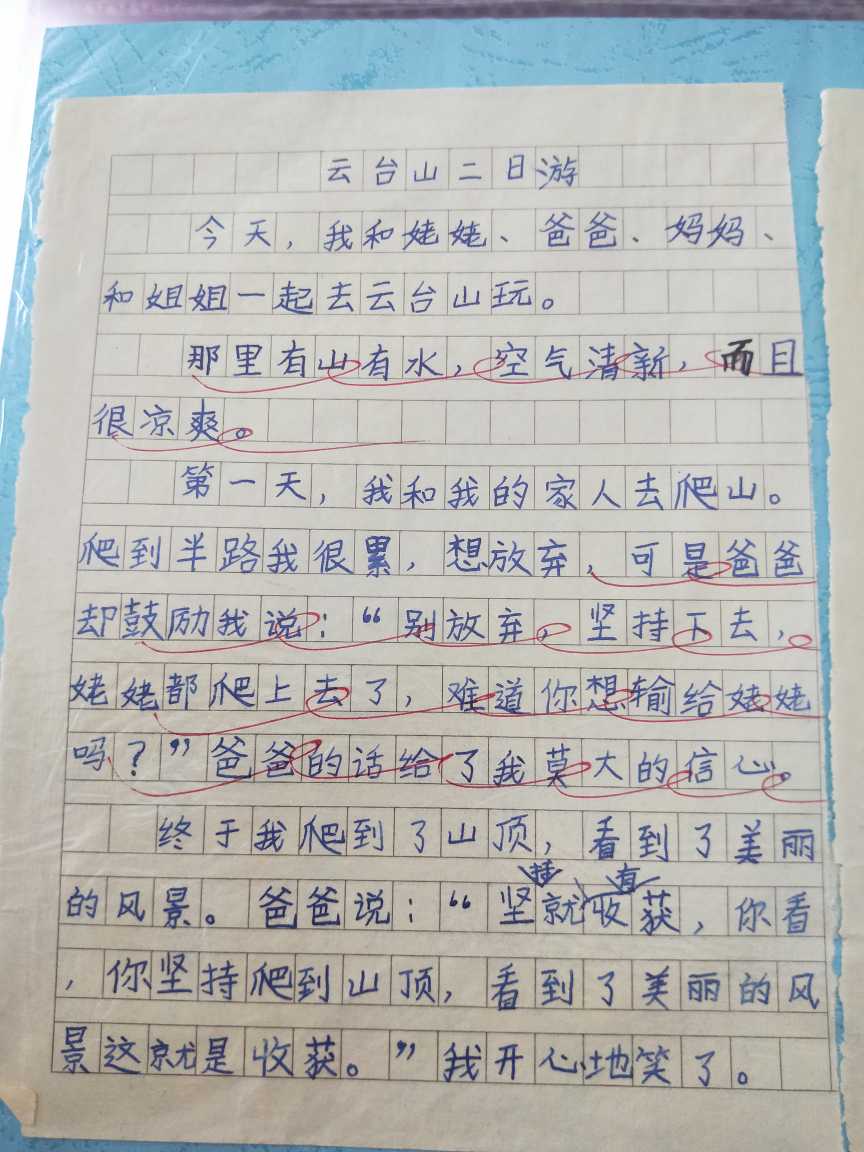 云台山二日游
今天，我和姥姥、爸爸、妈妈、
和姐姐一起去云台山玩。
那里有山有水，空气清新，而且
很凉爽。
第一天，我和我的家人去爬山。
爬到半路我很累，想放弃，可是爸爸
却鼓励我说：“别放弃，坚持下去，
姥姥都爬上去了，难道你想输给姥姥
吗？”爸爸的话给了我莫大的信心。
终于我爬到了山顶，看到了美丽
的风景。爸爸说：“坚持就有收获，你看
，你坚持爬到山顶，看到了美丽的风
景这就是收获。”我开心地笑了。